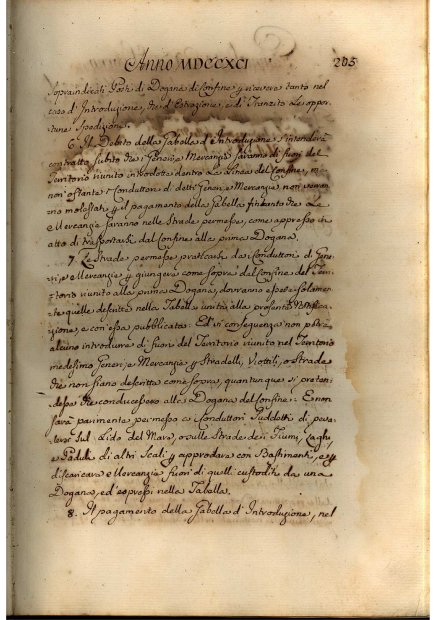 Anno MDCCXCI 205
sopraindicati Posti di Dogana di Confine p ricevere tanto nel
caso d'Introduzione, che d'Estrazione, e di Tranzito Le oppor-
tune Spedizioni.
6. Il Debito della Gabella d'Introduzione s'intenderà
contratto subito che i Generi, e Mercanzie saranno di fuori del
Territorio riunito introdotte dentro La Linea del Confine, ma
non ostante i Conduttori di detti Generi, e Mercanzie non verran-
no molestati p il pagamento della Gabella fintanto che Le
Mercanzie saranno nelle Strade permesse, come appresso in
atto di trasportarsi dal Confine alla prima Dogana.
7. Le Strade permesse praticarsi da Conduttori di Gene-
ri, e Mercanzie p giungere come sopra dal Confine del Terri-
torio riunito alla prima Dogana, dovranno essere solamen-
te quelle descritte nella Tabella unita alla presente Notifica-
zione, e con essa pubblicata: Ed in conseguenza non potrà
alcuno introdurre di fuori del Territorio riunito nel Territorio
medesimo Generi, e Mercanzie p Stradelli, Viottoli, o Strade
che non siano descritte come sopra, quantunque si preten-
desse che conducessero alle Dogane del Confine: E non
sarà parimente permesso ai Conduttori suddetti di por-
tarsi sul Lido del Mare, o sulle Strade dei Fiumi, Laghi,
e Paduli di altri Scali p approdare con Bastimenti, e p
discaricare Mercanzie fuori di quelli custoditi da una
Dogana, ed espressi nella Tabella.
8. Il pagamento della Gabella d'Introduzione, nel